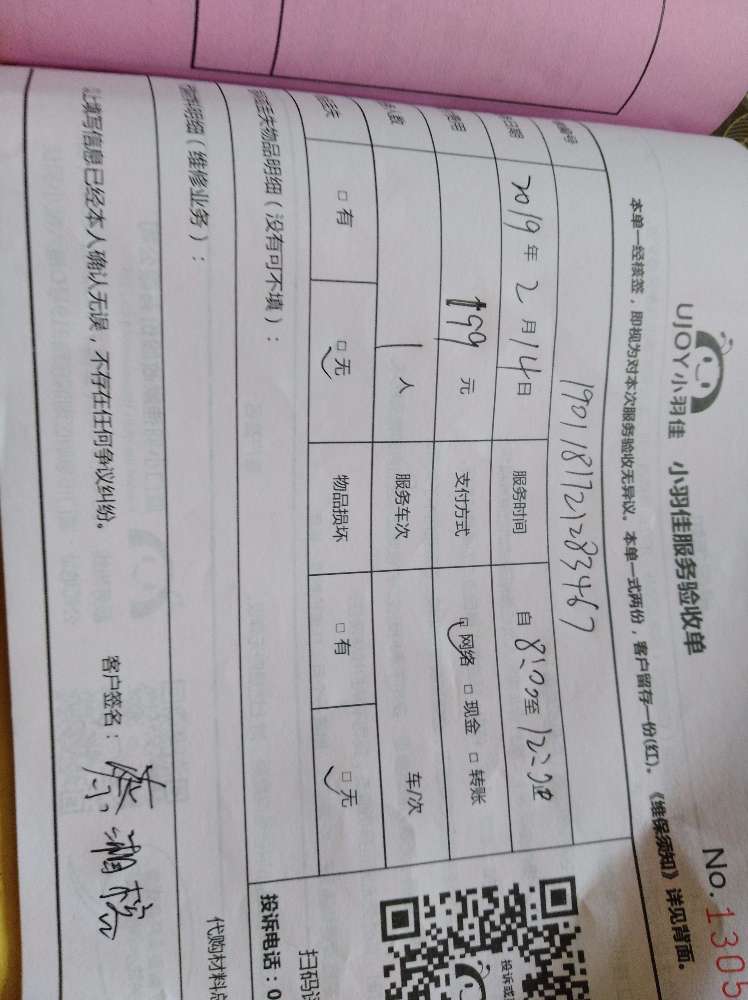 UJOY小羽佳 小羽佳服务验收单 No.1305
本单一经核签，即视为对本次服务验收无异议。本单一式两份，客户留存一份(红)。《维保须知》详见背面。
编号 1901181721283467
日期 2019年2月14日 服务时间 自8:00至12:00
费用 199元 支付方式 □网络 □现金 □转账
人数 1人 服务车次 车/次
丢失 □有 □无 物品损坏 □有 □无
丢失物品明细（没有可不填）：
明细（维修业务）：
代购材料
填写信息已经本人确认无误，不存在任何争议纠纷。 客户签名：
投诉或
扫码
投诉电话：0